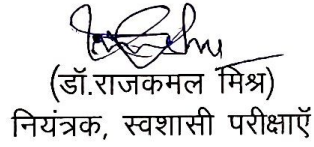 (डॉ.राजकमल मिश्र)
नियंत्रक, स्वशासी परीक्षाऍ